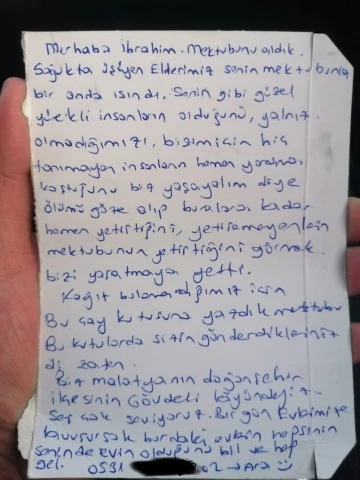 Merhaba İbrahim. Mektubunu aldık.
Soğukta üşüyen Ellerimiz senin mektubunla
bir anda ısındı. Senin gibi güzel
yürekli insanların olduğunu, yalnız
olmadığımızı, bizim için hiç
tanımayan insanların hemen yardıma
koştuğunu biz yaşayalım diye
ölümü göze alıp buralara kadar
hemen yetiştiğini, yetişemeyenlerin
mektubunun yetiştiğini görmek
bizi yaşatmaya yetti.
Kağıt bulamadığımız için
Bu çay kutusuna yazdık mektubu
Bu kutularda sizin gönderdikleriniz
di zaten.
Biz malatyanın doğanşehir
ilçesinin Gövdeli köyündeyiz.
Seni çok seviyoruz. Bir gün Evimize
kavuşursak burdaki evlerin hepsinin
senin de evin olduğunu bil ve hep
gel. 0531 02 → Ara